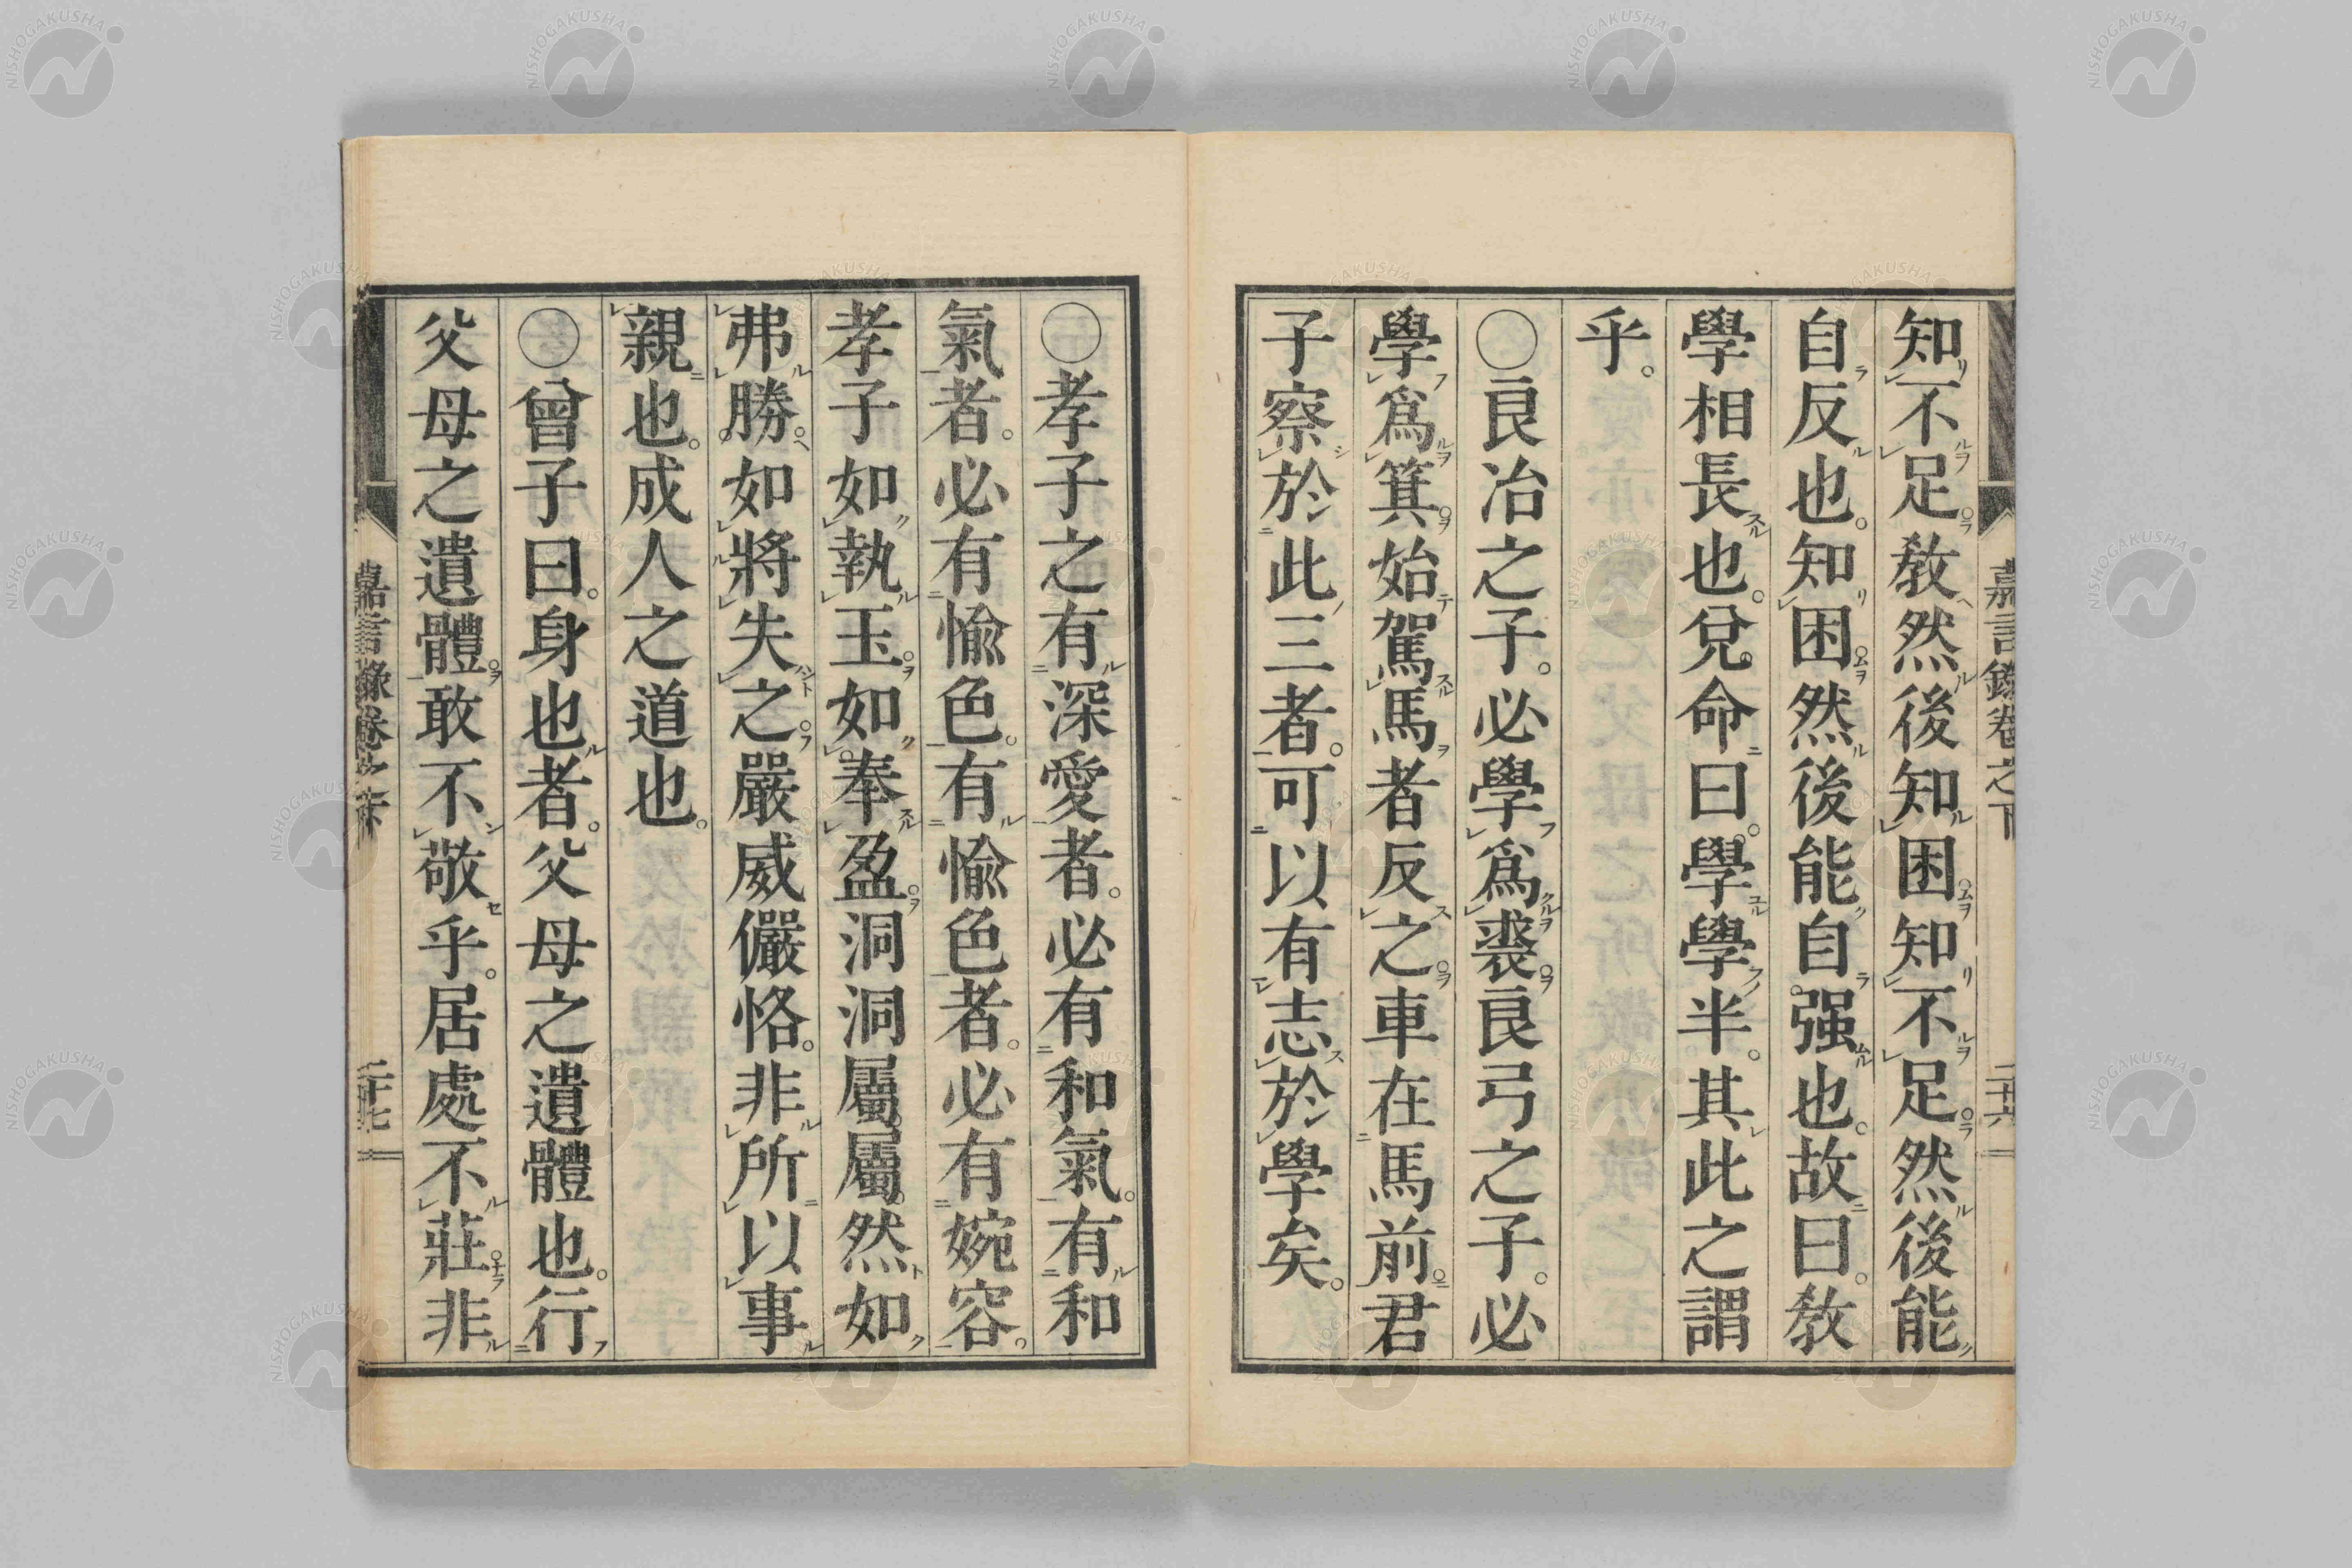 知不足教然後知困知不足然後能
自反也。知困然後能自强也。故曰。教
學相長也。兌命曰。學學半。其此之謂
乎。
○良冶之子。必學爲裘良弓之子。必
學爲箕。始駕馬者反之車在馬前。君
子察於此三者。可以有志於學矣。
嘉言錄卷之下
二十六
○孝子之有深愛者。必有和氣。有和
氣者。必有愉色。有愉色者。必有婉容。
孝子如執玉如奉盈洞洞屬屬然如
弗勝。如將失之嚴威儼恪。非所以事
親也。成人之道也。
○曾子曰。身也者。父母之遺體也。行
父母之遺體。敢不敬乎。居處不莊非
嘉言錄卷之下
二十七
NISHOGAKUSHA